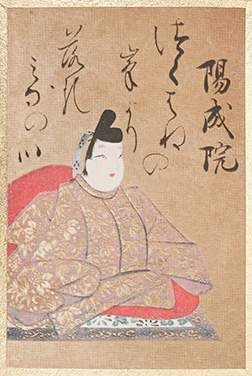 陽成院
つくばねの
峯より
落る
みなの川